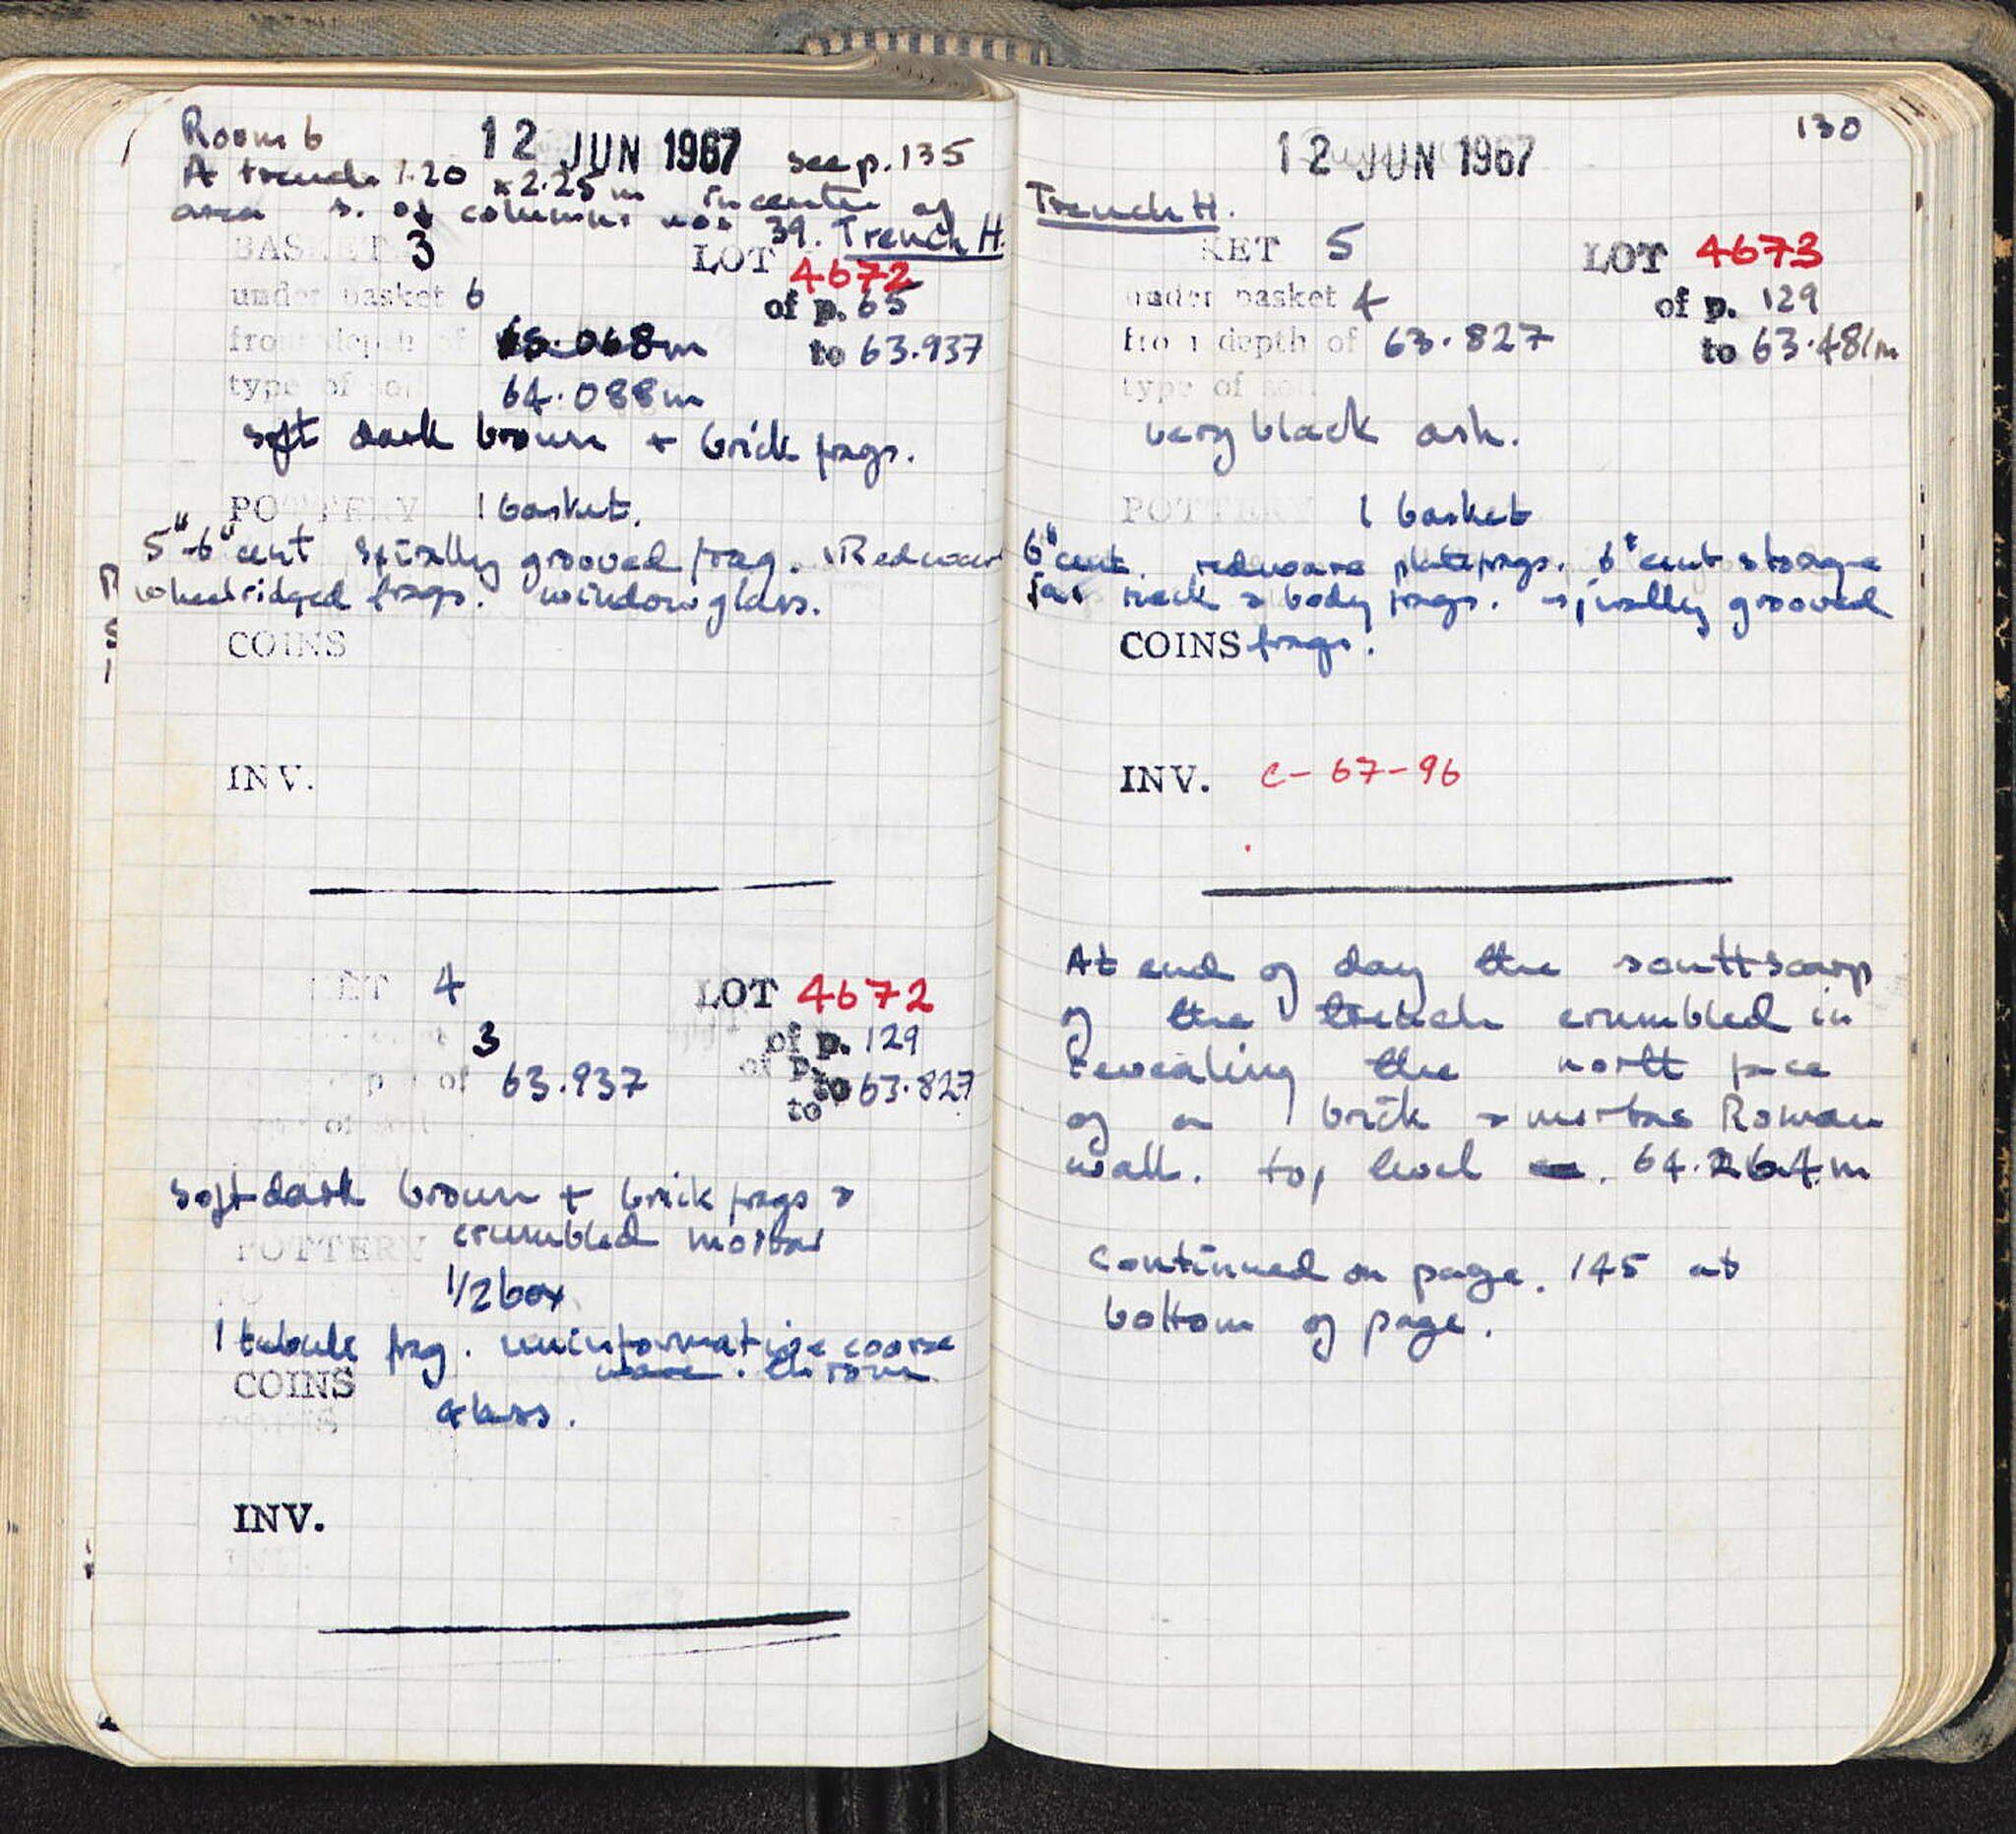 Room 6
12 JUN 1967 see p. 135
A trench 1.20 x 2.25 m in center of
area s. of columns nos 39. Trench H.
BASKET 3 LOT 4672
under basket 6 of p. 65
from depth of 65.068m to 63.937
type of soil 64.088m
soft dark brown + brick frags.
POTTERY 1 basket.
5"-6" cent spirally grooved frag. Redware
wheelridged frags. window glass.
COINS
INV.
KET 4 LOT 4672
3 of p. 129
of 63.937 to 63.827
of p.
to
of soil
soft dark brown + brick frags &
crumbled mortar
POTTERY
1/2 box
1 tubule frag. uninformative coarse
ware.
COINS
glass.
INV.
130
12 JUN 1967
Trench H.
KET 5 LOT 4673
under basket 4 of p. 129
from depth of 63.827 to 63.481m
type of soil
very black ash.
POTTERY 1 basket
6" cent. redware plate frags. 6" cent storage
jar neck & body frags. spirally grooved
COINS frags.
INV. C-67-96
At end of day the south scarp
of the trench crumbled in
revealing the north face
of a brick & mortar Roman
wall. top level. 64.264m
continued on page. 145 at
bottom of page.